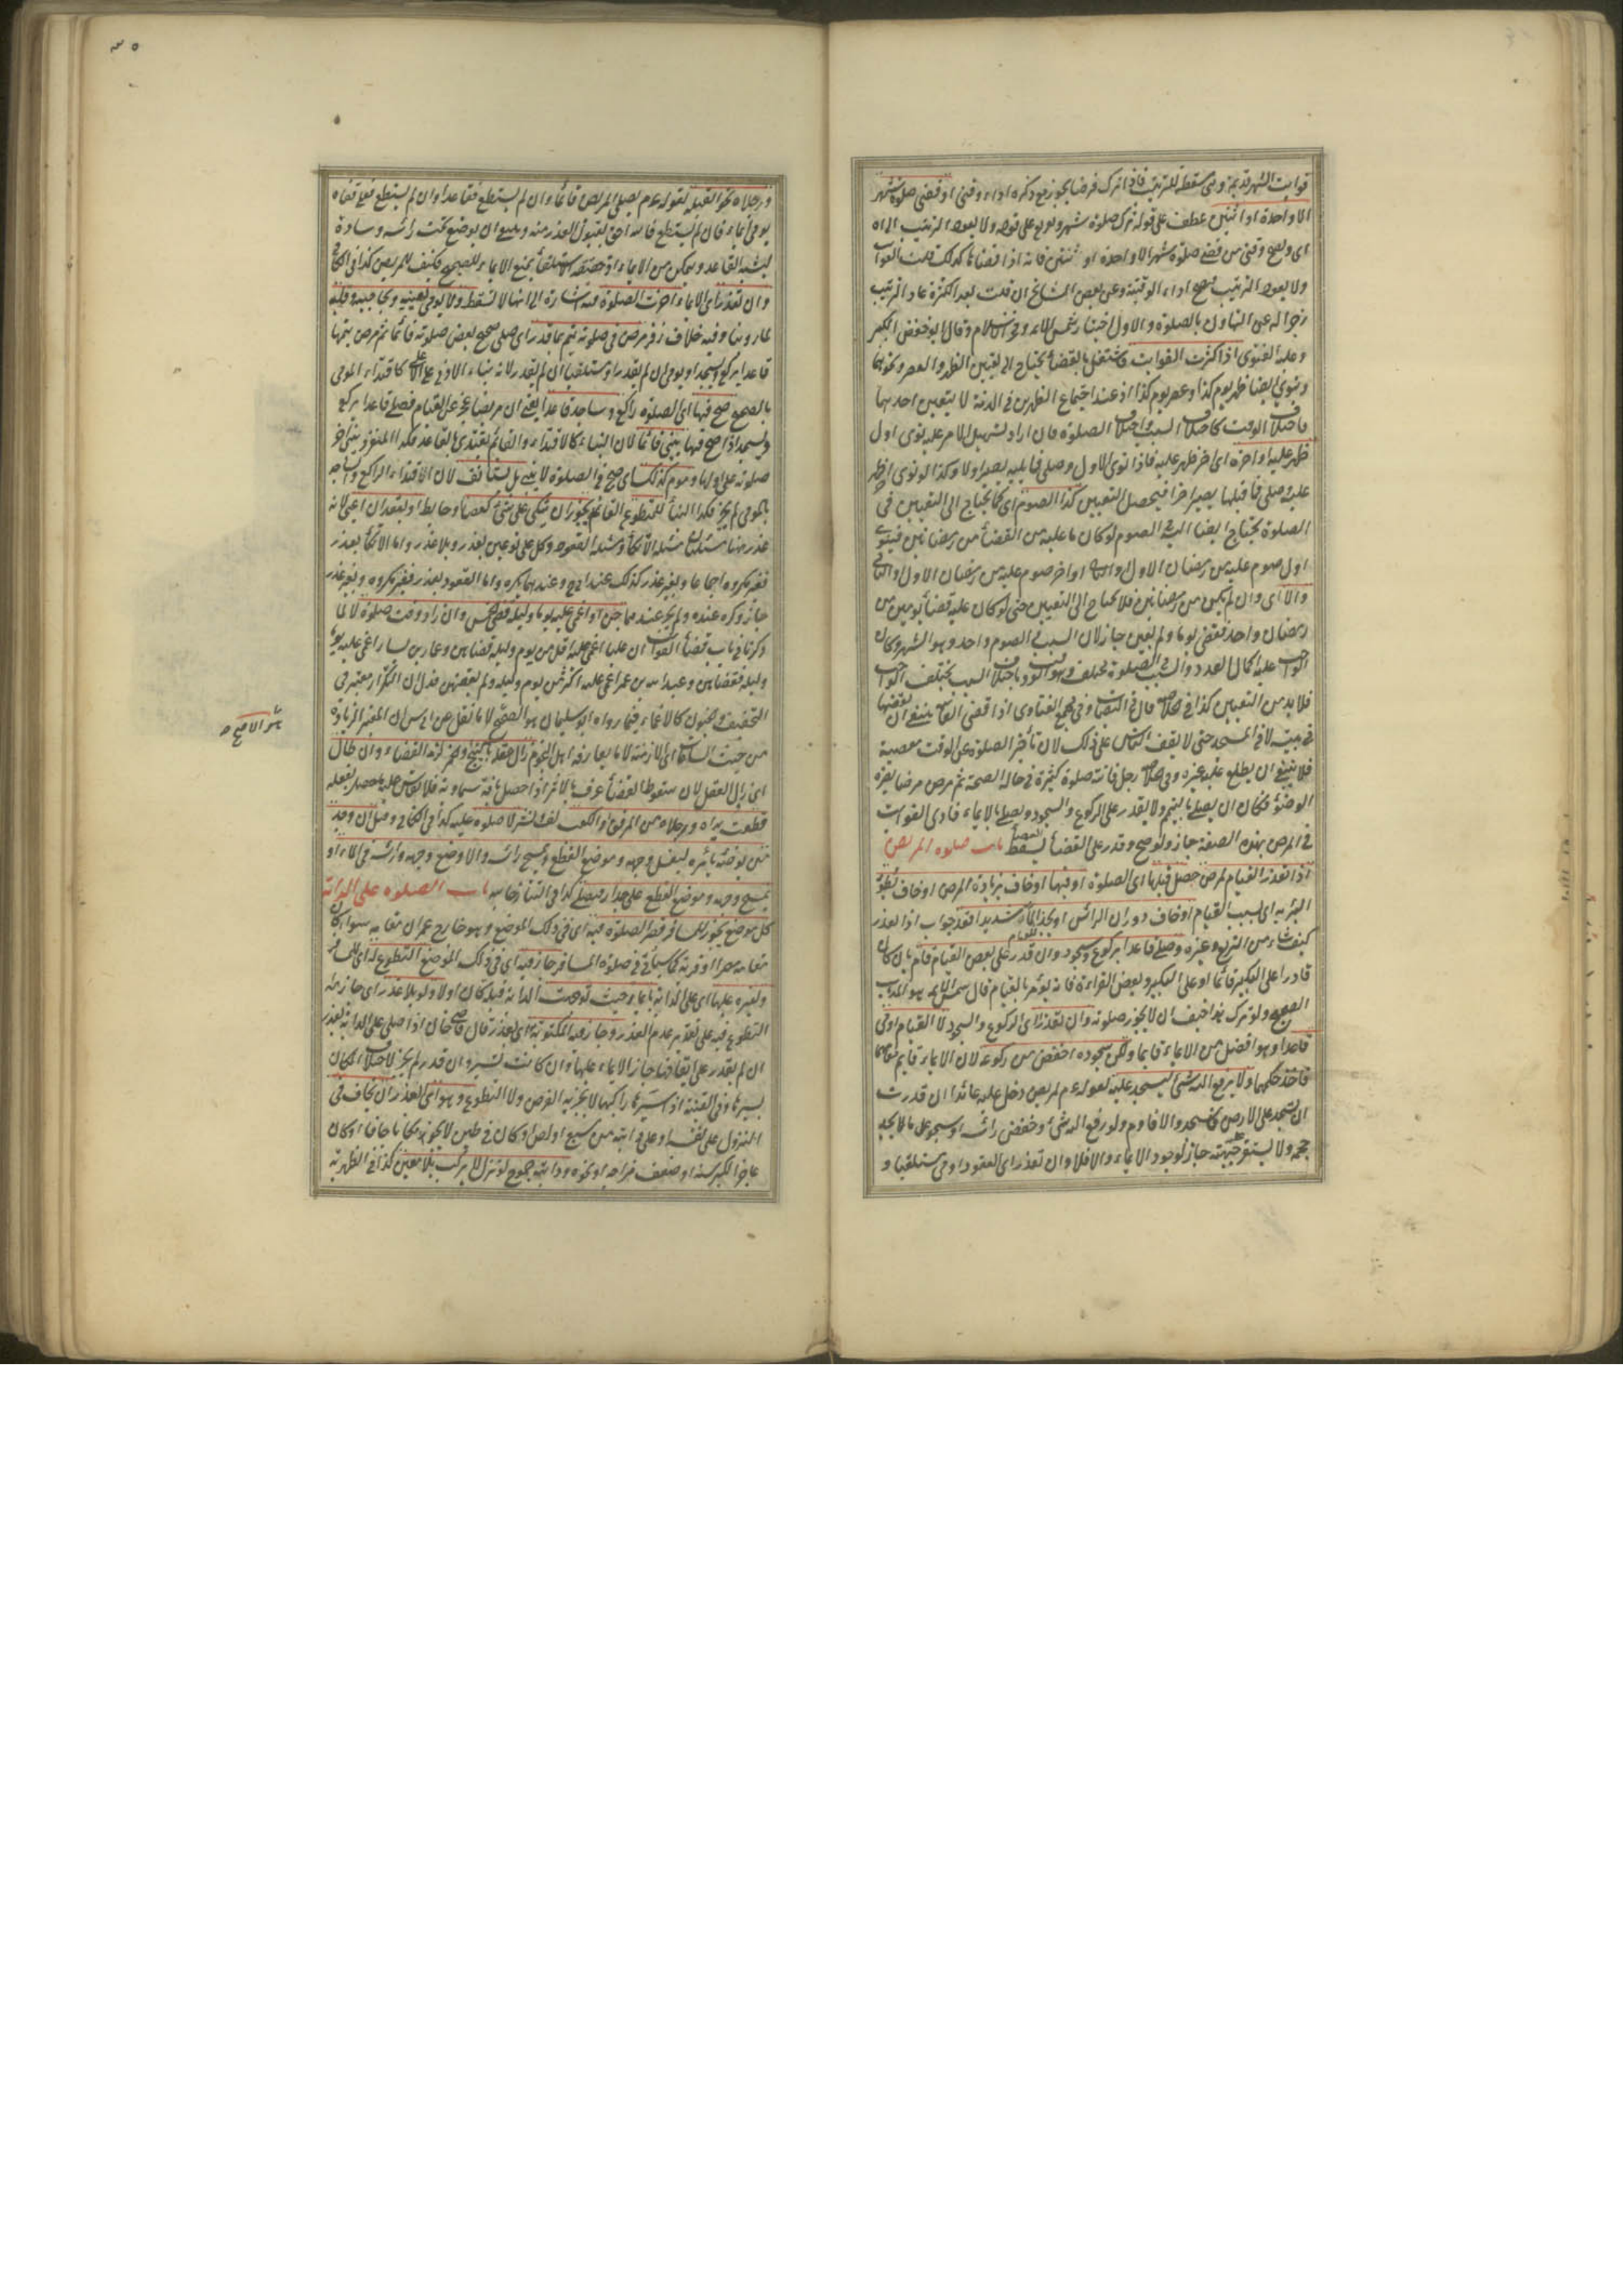 فوايت الشهر قديمة وهى مسقطة للترتيب فاذا ترك فرضا يجوز مع ذكره اداء وقتى او قضى صلوة شهر
الا واحدة او اثنتين عطف على قوله ترك صلوة شهر ولا يعود الترتيب
اى ويصح وقتى من قضى صلوة شهر الا واحدة او ثنتين فانه اذا قضاها كذلك قلت الفوايت
ولا يعود الترتيب فيصح اداء الوقتية وعن بعض المشايخ ان قلت بعد الكثرة عاد الترتيب
زجرا له عن التهاون بالصلوة والاول اختيار شمس الائمة وفخر الاسلام وقال ابو حفص الكبير
وعليه الفتوى اذا كثرت الفوايت فاشتغل بالقضاء يحتاج الى تعيين الظهر والعصر ونحوهما
وينوى ايضا ظهر يوم كذا وعصر يوم كذا اذ عند اجتماع الظهرين فى الذمة لا يتعين احدهما
فاختلاف الوقت كاختلاف السبب واختلاف الصلوة فان اراد تسهيل الامر عليه نوى اول
ظهر عليه او اخره اى اخر ظهر عليه فاذا نوى الاول وصلى فما يليه يصير اولا وكذا لو نوى اخر ظهر
عليه وصلى فما قبلها يصير اخرا فيحصل التعيين كذا الصوم اى كما يحتاج الى التعيين فى
الصلوة يحتاج ايضا اليه فى الصوم لو كان ما عليه من القضاء من رمضانين فينوى
اول صوم عليه من رمضان الاول او الثانى او اخر صوم عليه من رمضان الاول او الثانى
والا اى وان لم يكن من رمضانين فلا يحتاج الى التعيين حتى لو كان عليه قضاء يومين من
رمضان واحد فقضى يوما ولم يعين جاز لان السبب فى الصوم واحد وهو الشهر وكان
الواجب عليه اكمال العدد والسبب فى الصلوة مختلف وهو الوقت وباختلاف السبب يختلف الواجب
فلا بد من التعيين كذا فى الخلاصة قال فى وفى مجمع الفتاوى اذا قضى الفائت ينبغى ان يقضيها
فى بيته لا فى المسجد حتى لا يقف الناس على ذلك لان تأخير الصلوة عن الوقت معصية
فلا ينبغى ان يطلع عليه غيره وفى الخلاصة رجل فاتته صلوة كثيرة فى حالة الصحة ثم مرض مرضا يضره
الوضوء فكان ان يصلى بالتيمم ولا يقدر على الركوع والسجود ويصلى بالايماء فادى الفوايت
فى المرض بهذه الصفة جاز ولو صح وقدر على القضاء يسقط باب صلوة المريض
اذا تعذر القيام لمرض حصل قبلها اى الصلوة او فيها او خاف زيادة المرض او خاف بطؤ
البرء به اى بسبب القيام او خاف دوران الرأس او يجد للقيام الما شديدا قعد جواب اذا تعذر
كيف شاء من التربع وغيره وصلى قاعدا بركوع وسجود وان قدر على بعض القيام قام بان كان
قادرا على التكبير قائما او على التكبير وبعض القراءة فانه يؤمر بالقيام قال شمس الائمة هو المذهب
الصحيح ولو ترك هذا خيف ان لا يجوز صلوته وان تعذر اى الركوع والسجود لا القيام اومى
قاعدا وهو افضل من الايماء قايما ولكن سجوده اخفض من ركوعه لان الايماء قايم مقامهما
فاخذ حكمهما ولا يرفع اليه شئ ليسجد عليه لقوله عم لمريض دخل عليه عائدا ان قدرت
ان تسجد على الارض فاسجد والا فاوم ولو رفع اليه شئ وخفض رأسه او سجد على ما لا يجد
حجمه ولا يستقر جبهته جاز لوجود الايماء والا فلا وان تعذر اى القعود اومى مستلقيا و
٣٥
ورجلاه نحو القبلة لقوله عم يصلى المريض قائما وان لم يستطع فقاعدا وان لم يستطع فعلى قفاه
يومى ايماء فان لم يستطع فالله احق بقبول العذر منه وينبغى ان يوضع تحت رأسه وسادة
ليشبه القاعد ويمكن من الايماء اذ حقيقة الاستلقاء يمنع الايماء للصحيح فكيف للمريض كذا فى الكافى
وان تعذر اى الايماء اخرت الصلوة فيه اشارة الى انها لا تسقط ولا يومى بعينيه وبحاجبيه وقلبه
لما روينا وفيه خلاف زفر مرض فى صلوته يتم بما قدر اى صلى صحيح بعض صلوته قائما ثم مرض يتمها
قاعدا يركع ويسجد او يومى ان لم يقدر او مستلقيا ان لم يقدر لانه بناء الادنى على الاعلى كاقتداء المومى
بالصحيح صح فيها اى الصلوة راكع وساجد قاعدا يعنى ان مريضا عجز عن القيام فصلى قاعدا يركع
ويسجد اذا صح فيها يبنى قائما لان البناء كالاقتداء والقائم يقتدى بالقاعد فكذا المنفرد يبنى اخر
صلوته على اولها ومؤم كذلك اى صح فى الصلوة لا يبنى بل يستأنف لان الاقتداء الراكع والساجد
بالمومى لم يجز فكذا البناء للمتطوع القائم يجوز ان يتكى على شئ كعصا وحايط او يقعد ان اعيى لانه
عذر هنا مسئلتان مسئلة الاتكاء ومسئلة القعود وكل على نوعين بعذر وبلا عذر واما الاتكاء بعذر
فغير مكروه اجماعا وبغير عذر كذلك عند ابى ح وعندهما يكره واما القعود بعذر فغير مكروه وبغير عذر
جاز وكره عنده ولم يجز عندهما جن او اغمى عليه يوما وليلة قضى الخمس وان زاد وقت صلوة لا لما
ذكرنا فى باب قضاء الفوائت ان عليا اغمى عليه اقل من يوم وليلة قضاهن وعمار بن ياسر اغمى عليه يوما
وليلة فقضاهن وعبد الله بن عمر اغمى عليه اكثر من يوم وليلة ولم يقضهن فدل ان التكرار معتبر فى
التخفيف والجنون كالاغماء فيما رواه ابو سليمان هو الصحيح لا ما نقل عن ابى س ان المعتبر الزيادة
من حيث الساعات اى الازمنة لا ما يعارفه اهل النجوم زال عقله بالبنج والخمر لزمه القضاء وان طال
اى زال العقل لان سقوط القضاء عرف بالاثر اذا حصل بآفة سماوية فلا يقاس عليه ما حصل بفعله
قطعت يداه ورجلاه من المرفق والكعب لف نشر لا صلوة عليه كذا فى الكافى وقيل ان وجد
من يوضئه يأمره ليغسل وجهه وموضع القطع ويمسح رأسه والا وضع وجهه ورأسه فى الماء او
يمسح وجهه وموضع القطع على جدار فيصلى كذا فى التتارخانيه باب الصلوة على الدابة
كل موضع يجوز للمسافر قصر الصلوة فيه اى فى ذلك الموضع وهو خارج عمران مقامه سواء كان
مقامه مصرا او قرية كما سيأتى فى صلوة المسافر جاز فيه اى فى ذلك الموضع التطوع له اى للمسافر
ولغيره عليها اى على الدابة بايماء حيث توجهت الدابة قبلة كان اولا ولو بلا عذر اى جاز له
التطوع فيه على تقدير عدم العذر وجاز فيه المكتوبة اى بعذر قال قاضى خان اذا صلى على الدابة بعذر
ان لم يقدر على ايقافها جاز الايماء عليها وان كانت تسير وان قدر لم يجز لاختلاف المكان
بسيرها وفى القنية اذا سيرها راكبها لا يجزيه الفرض ولا التطوع وهو اى العذر ان يخاف فى
النزول على نفسه او على دابته من سبع او لص او كان فى طين لا يجد مكانا جافا او كان
عاجزا لكبر سنه او ضعف مزاجه او نحوه ودابته جموح لو نزل لا يركب بلا معين كذا فى الظهيرية